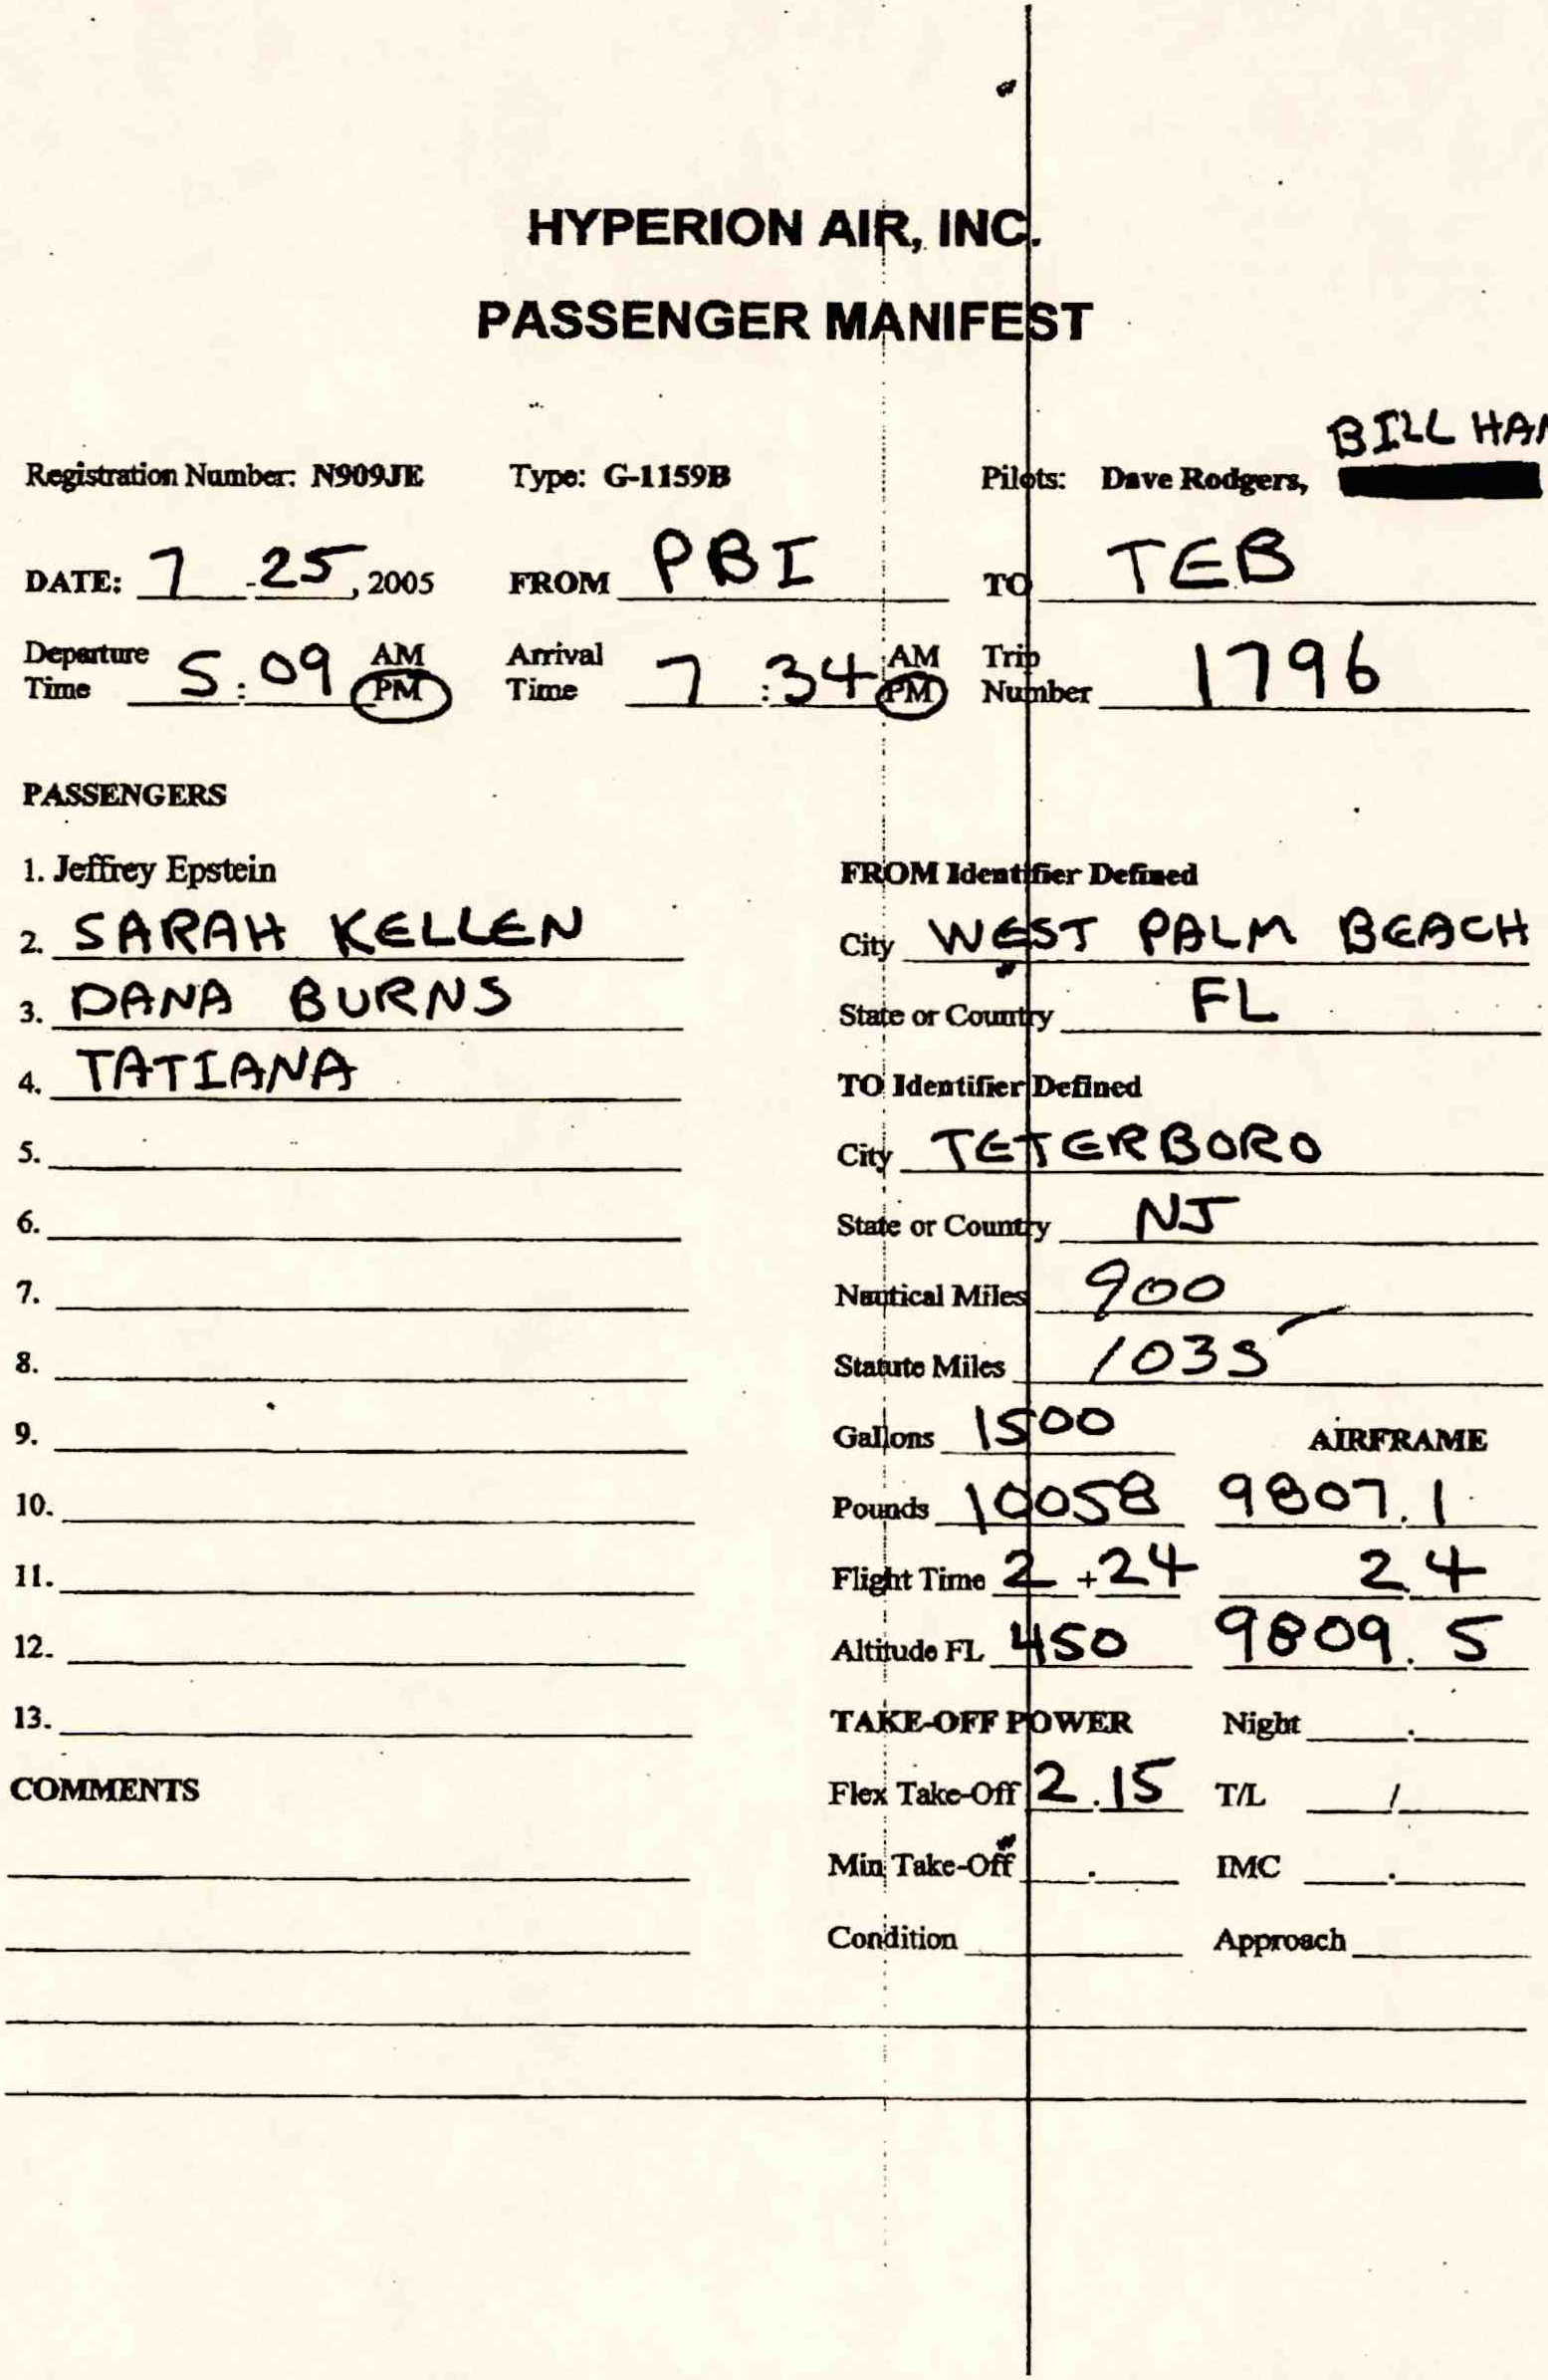 HYPERION AIR, INC.
PASSENGER MANIFEST
BILL
Registration Number: N909JE Type: G-1159B Pilots: Dave Rodgers,
DATE: 7 - 25, 2005 FROM PBI TO TEB
Departure Time 5:09 AM PM Arrival Time 7:34 AM PM Trip Number 1796
PASSENGERS
1. Jeffrey Epstein FROM Identifier Defined
2. SARAH KELLEN City WEST PALM BEACH
3. DANA BURNS State or Country FL
4. TATIANA TO Identifier Defined
5. City TETERBORO
6. State or Country NJ
7. Nautical Miles 900
8. Statute Miles 1035
9. Gallons 1500 AIRFRAME
10. Pounds 10058 9807.1
11. Flight Time 2+24 2.4
12. Altitude FL 450 9809.5
13. TAKE-OFF POWER Night .
COMMENTS Flex Take-Off 2.15 T/L /
Min Take-Off . IMC .
Condition Approach